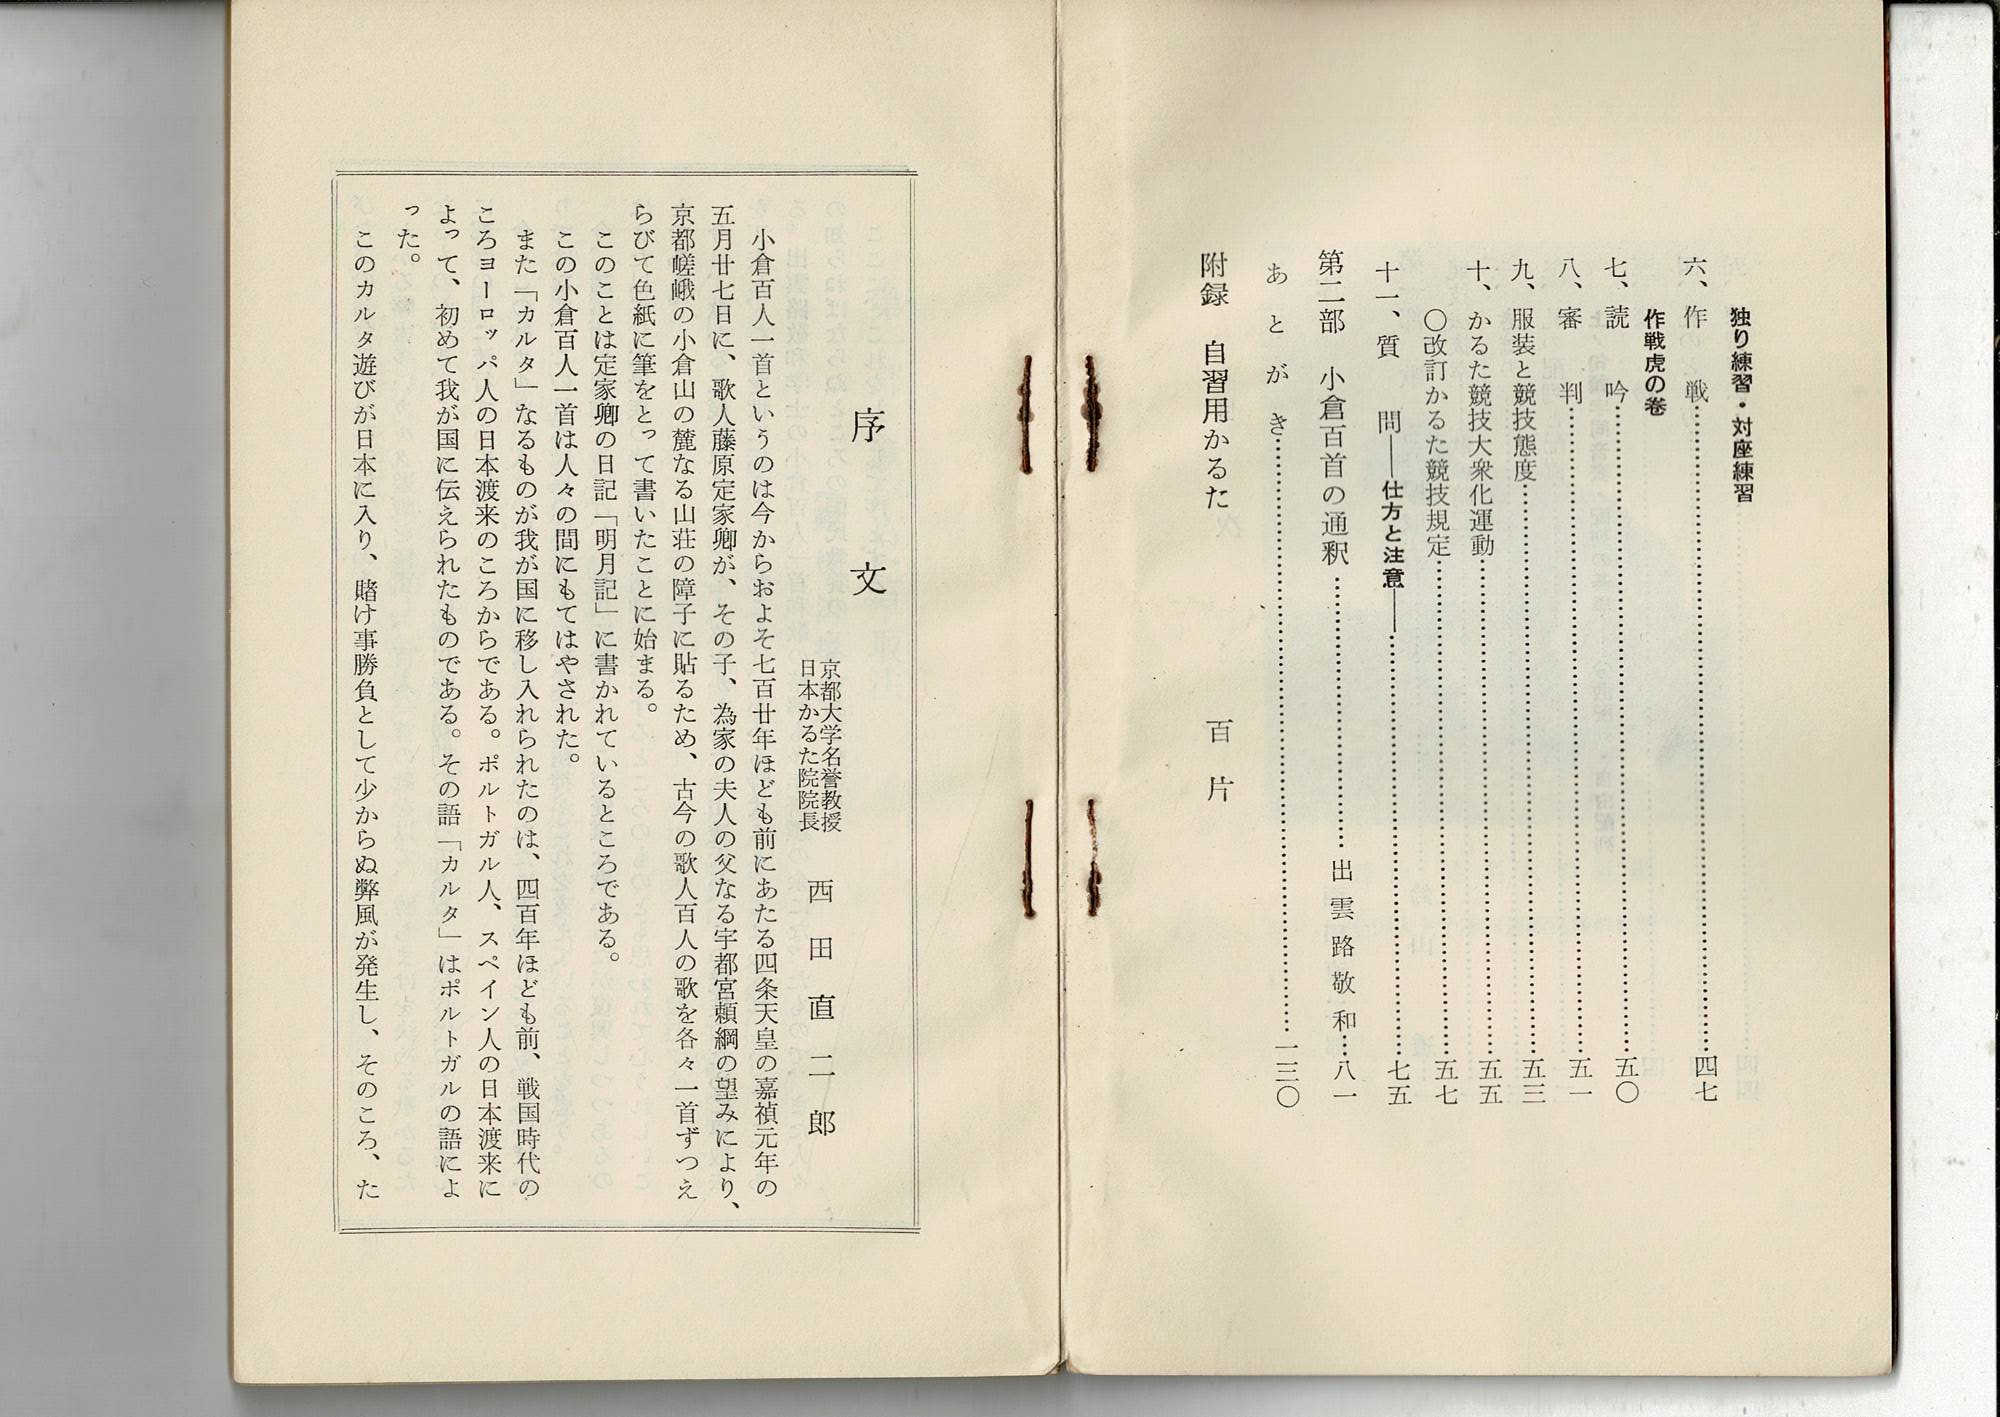 独り練習・対座練習
六、作　戦……四七
作戦虎の巻
七、読　吟……五〇
八、審　判……五一
九、服装と競技態度……五三
十、かるた競技大衆化運動……五五
〇改訂かるた競技規定……五七
十一、質　問――仕方と注意――……七五
第二部　小倉百首の通釈……出雲路敬和…八一
あとがき……一三〇
附録　自習用かるた　百片
序文
京都大学名誉教授
日本かるた院院長　西田直二郎
小倉百人一首というのは今からおよそ七百廿年ほども前にあたる四条天皇の嘉禎元年の
五月廿七日に、歌人藤原定家卿が、その子、為家の夫人の父なる宇都宮頼綱の望みにより、
京都嵯峨の小倉山の麓なる山荘の障子に貼るため、古今の歌人百人の歌を各々一首ずつえ
らびて色紙に筆をとって書いたことに始まる。
このことは定家卿の日記「明月記」に書かれているところである。
この小倉百人一首は人々の間にもてはやされた。
また「カルタ」なるものが我が国に移し入れられたのは、四百年ほども前、戦国時代の
ころヨーロッパ人の日本渡来のころからである。ポルトガル人、スペイン人の日本渡来に
よって、初めて我が国に伝えられたものである。その語「カルタ」はポルトガルの語によ
った。
このカルタ遊びが日本に入り、賭け事勝負として少からぬ弊風が発生し、そのころ、た